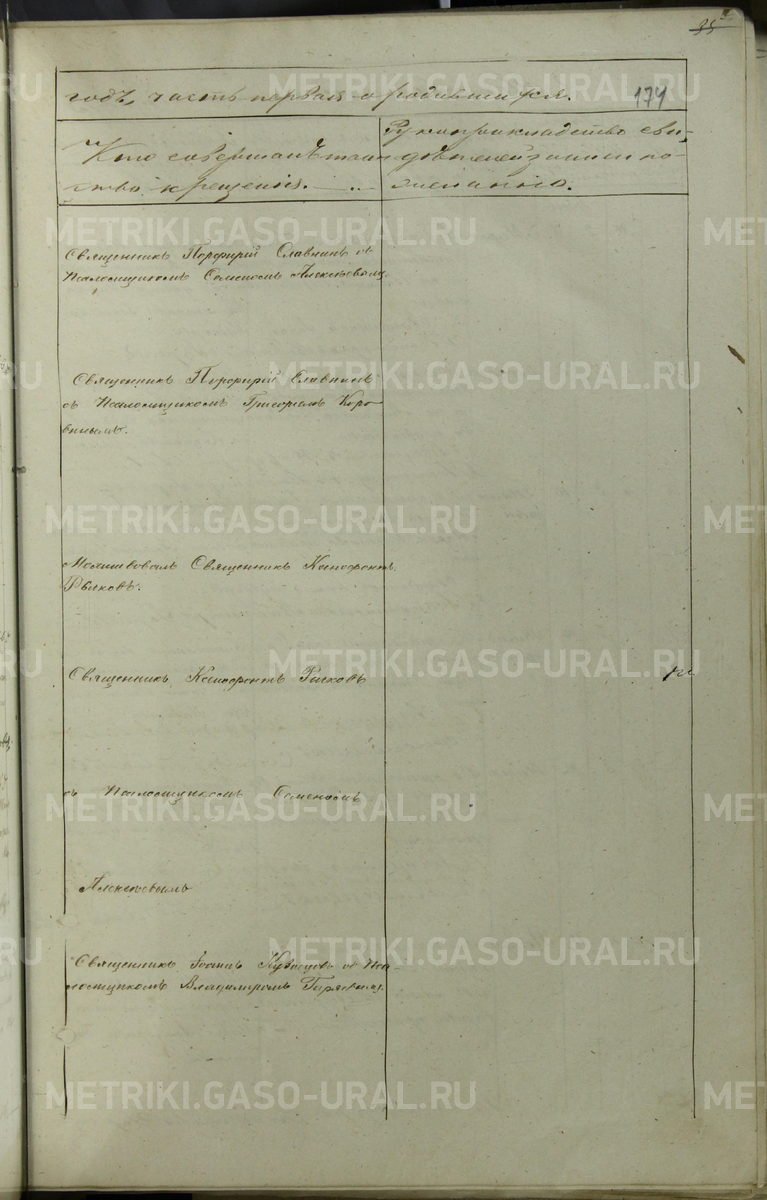 35
174
годъ, часть первая о родившихся.
Кто совершалъ таин-
ство крещенія.
Рукоприкладство сви-
дѣтелей записи по
желанію.
Священникъ Порфирій Славнинъ съ
Псаломщикомъ Семеномъ Алексѣевымъ
Священникъ Порфирій Славнинъ
съ Псаломщикомъ Григоріемъ Коро-
внымъ.
Молитвовалъ Священникъ Ксенофонтъ
Рычковъ.
Священникъ Ксенофонтъ Рычковъ
съ Псаломщикомъ Семеномъ
Алексѣевымъ
Священникъ Іоаннъ Кузнецовъ съ Пса-
ломщикомъ Владиміромъ
METRIKI.GASO-URAL.RU